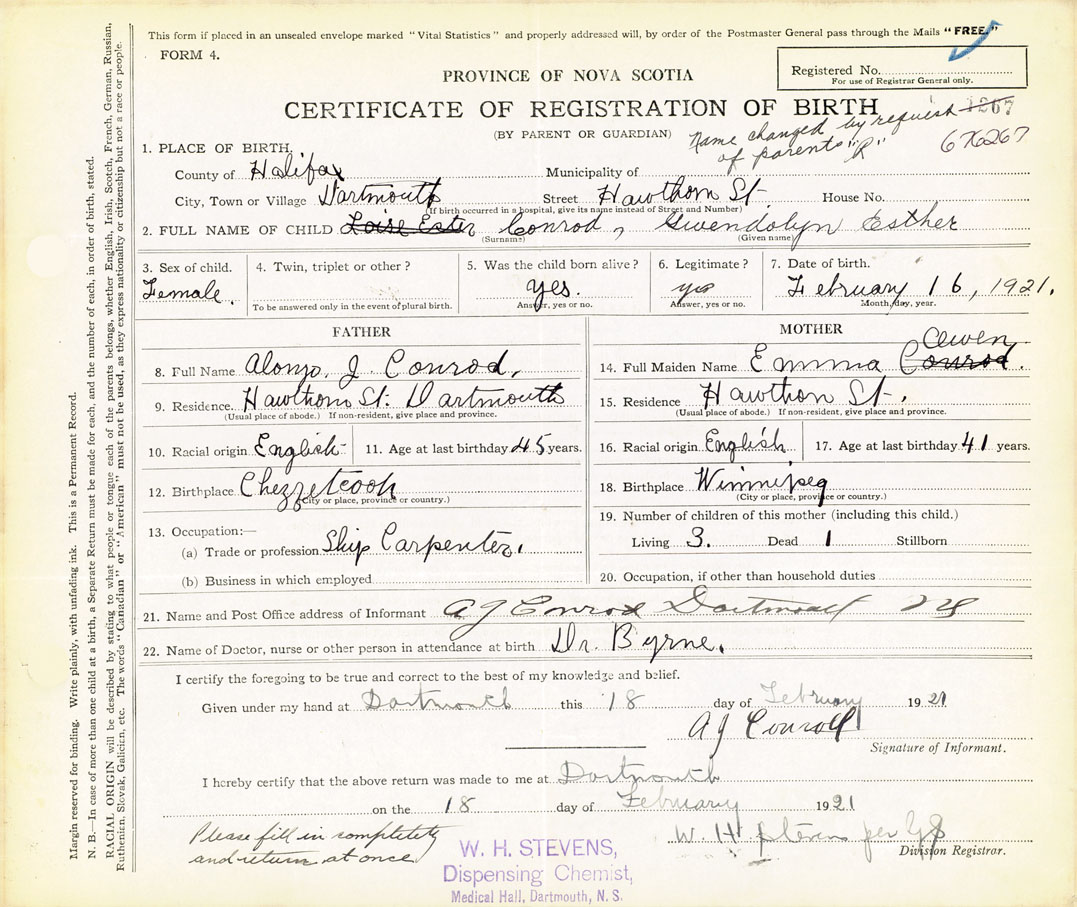 This form if placed in an unsealed envelope marked "Vital Statistics" and properly addressed will, by order of the Postmaster General pass through the Mails "FREE."
FORM 4.
Registered No.
For use of Registrar General only.
PROVINCE OF NOVA SCOTIA
CERTIFICATE OF REGISTRATION OF BIRTH
(BY PARENT OR GUARDIAN)
Name changed by request
of parents "R"
676267
1. PLACE OF BIRTH.
County of Halifax Municipality of
City, Town or Village Dartmouth Street Hawthorn St House No.
(If birth occurred in a hospital, give its name instead of Street and Number)
2. FULL NAME OF CHILD Loise Ester Conrod, Gwendolyn Esther
(Surname) (Given name)
3. Sex of child. Female.
4. Twin, triplet or other?
To be answered only in the event of plural birth.
5. Was the child born alive? yes.
Answer, yes or no.
6. Legitimate? yes
Answer, yes or no.
7. Date of birth. February 16, 1921.
Month, day, year.
FATHER
8. Full Name Alonzo. J. Conrod.
9. Residence. Hawthorn St. Dartmouth
(Usual place of abode.) If non-resident, give place and province.
10. Racial origin English 11. Age at last birthday 45 years.
12. Birthplace Chezzetcook
(City or place, province or country.)
13. Occupation:—
(a) Trade or profession Ship Carpenter.
(b) Business in which employed
MOTHER
14. Full Maiden Name Emma Conrod.
15. Residence Hawthon St.
(Usual place of abode.) If non-resident, give place and province.
16. Racial origin English 17. Age at last birthday 41 years.
18. Birthplace Winnipeg
(City or place, province or country.)
19. Number of children of this mother (including this child.)
Living 3. Dead 1 Stillborn
20. Occupation, if other than household duties
21. Name and Post Office address of Informant A J Conrod Dartmouth NS
22. Name of Doctor, nurse or other person in attendance at birth Dr. Byrne.
I certify the foregoing to be true and correct to the best of my knowledge and belief.
Given under my hand at Dartmouth this 18 day of February 1921
A J Conrod
Signature of Informant.
I hereby certify that the above return was made to me at Dartmouth
on the 18 day of February 1921
W. H. Stevens per
Division Registrar.
Please fill in completely
and return at once
W. H. STEVENS,
Dispensing Chemist,
Medical Hall, Dartmouth, N. S.
Margin reserved for binding. Write plainly, with unfading ink. This is a Permanent Record.
N. B.—In case of more than one child at a birth, a Separate Return must be made for each, and the number of each, in order of birth, stated.
RACIAL ORIGIN will be described by stating to what people or tongue each of the parents belongs, whether English, Irish, Scotch, French, German, Russian,
Ruthenien, Slovak, Galicien, etc. The words "Canadian" or "American" must not be used, as they express nationality or citizenship but not a race or people.